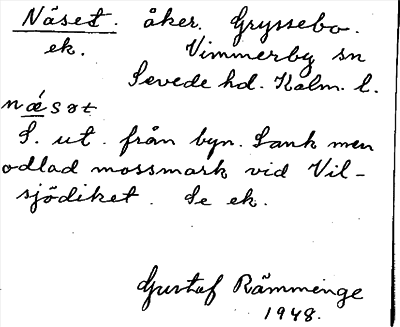 Näset. åker. Gryssebo.
ek. Vimmerby sn
Sevede hd. Kalm. l.
næ´søt
S. ut. från byn. Sank men
odlad mossmark vid Vil-
sjödiket. Se ek.
Gustaf Rämminge
1948.